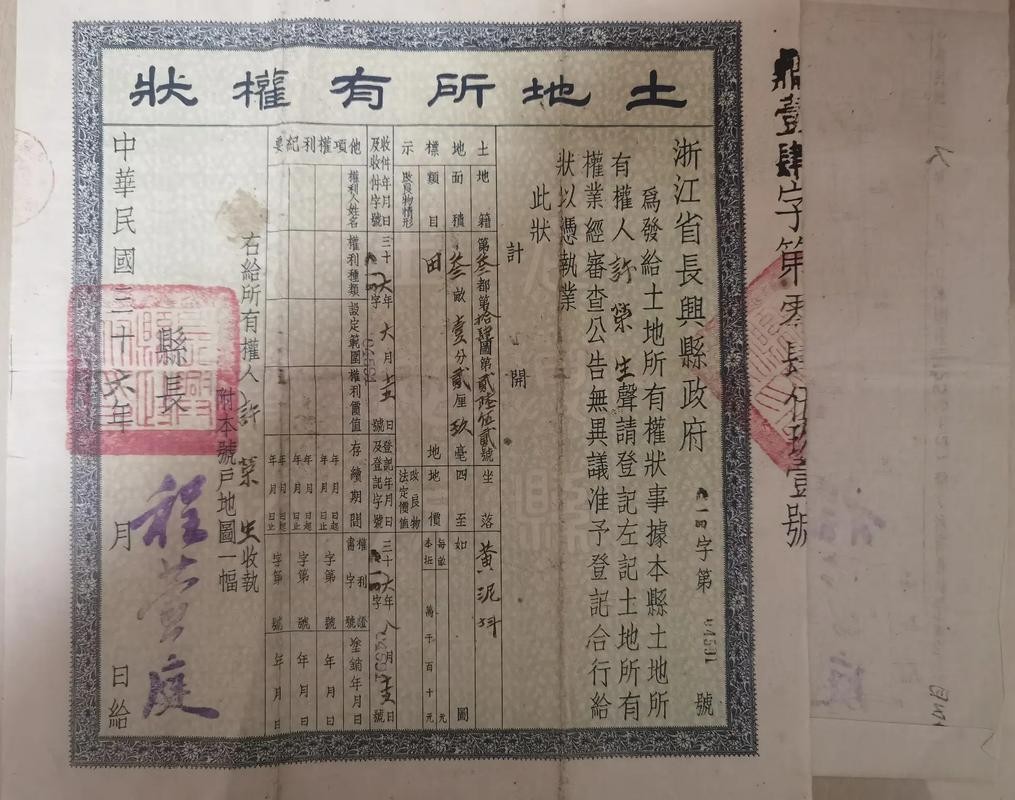 土地所有權狀
鼎壹肆字第零肆伍玖壹號
浙江省長興縣政府
字第04591號
爲發給土地所有權狀事據本縣土地所
有權人許榮生聲請登記左記土地所有
權業經審查公告無異議准予登記合行給
狀以憑執業
此狀
計開
土地標示
地籍
第叁都第拾肆圖第貳陸伍貳號
坐落
黃泥
面積
叁畝壹分貳厘玖毫
四至
如圖
類目
田
地價
每畝
本坵
萬千百十元
改良物情形
改良物法定價值
收件年月日及收件字號
三十六年六月五日
字04591號
登記年月日及登記字號
三十六年八月日
字04591號
他項權利紀要
權利人姓名
權利種類
設定範圍
權利價值
存續期間
權利證書字號
塗銷年月日
年月日起
年月日止
字第號
年月日
年月日起
年月日止
字第號
年月日
年月日起
年月日止
字第號
年月日
右給所有權人許榮生收執
附本號戶地圖一幅
縣長
程萱庭
中華民國三十六年月日給